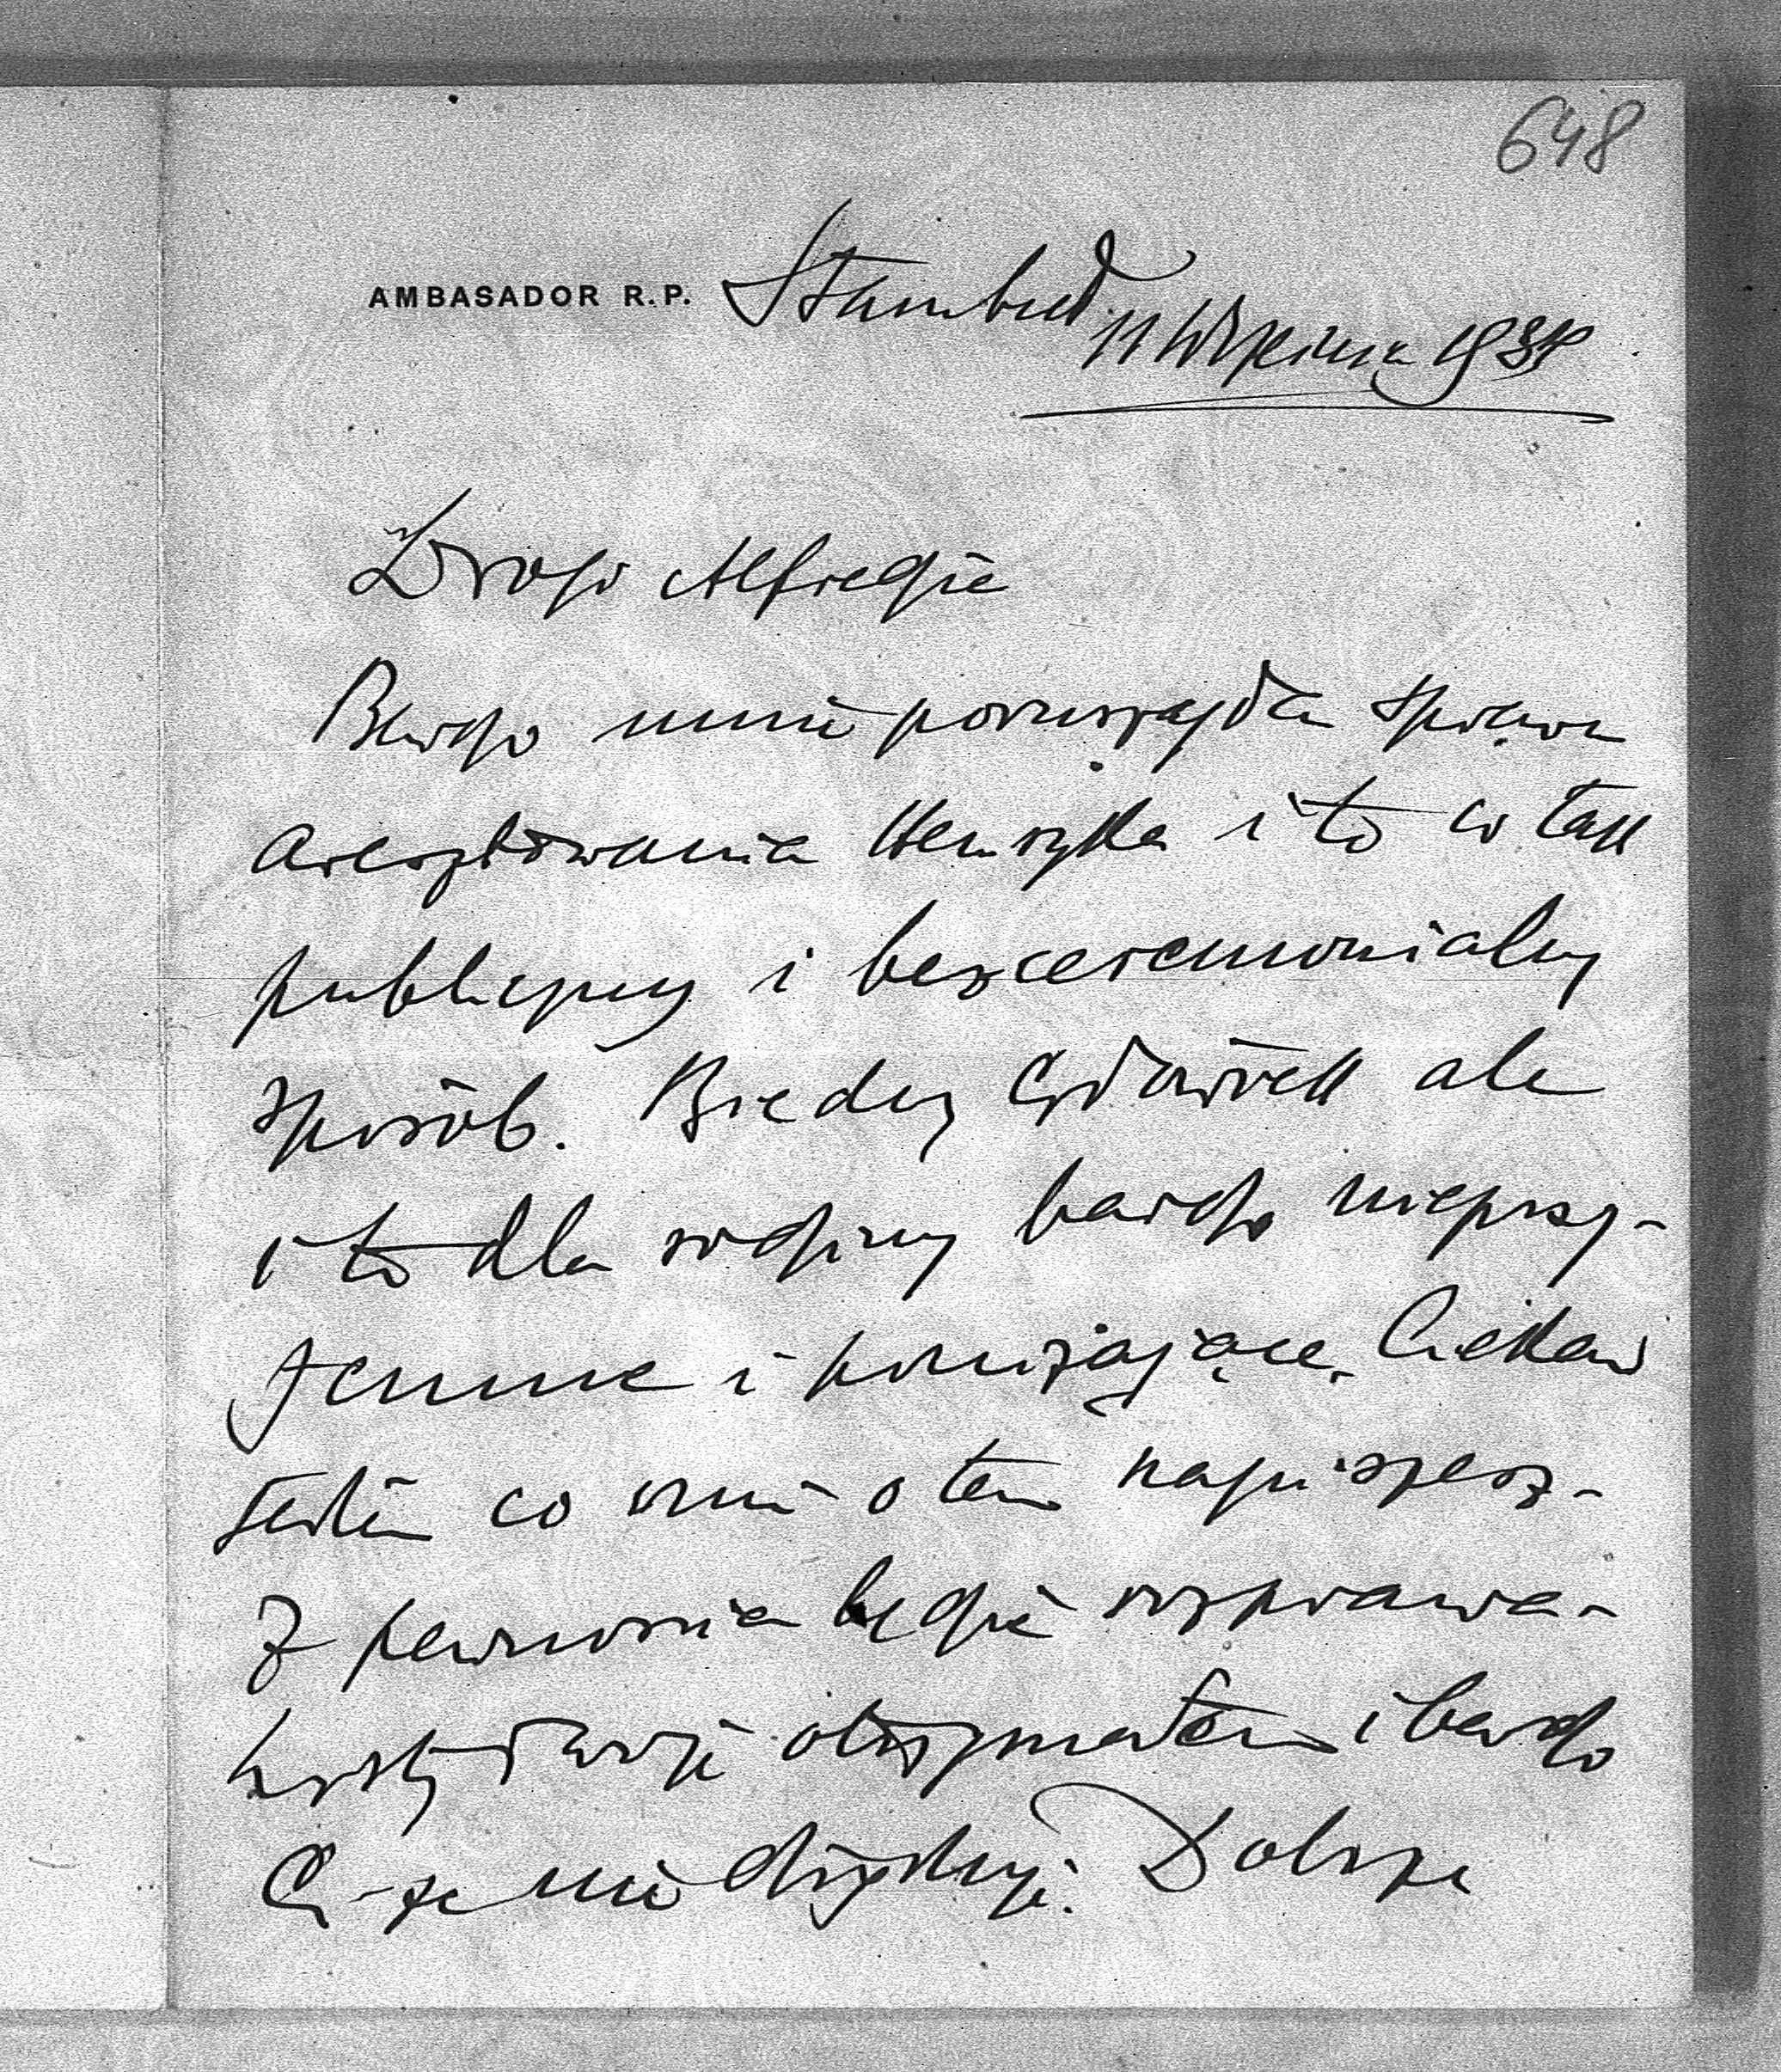 648
AMBASADOR R.P. Stambuł
11 Sierpnia 193
Drogi Alfredzie
Bardzo mnie poruszyła sprawa
aresztowania Henryka i to w tak
publiczny i bezceremonialny
sposób. Biedny człowiek ale
i to dla rodziny bardzo nieprzy-
jemne i poniżające. Ciekaw
jestem co mi o tem napiszesz.
Z pewnością będzie rozprawa-
Listy Twoje otrzymałem i bardzo
Ci za nie dziękuję. Dobrze